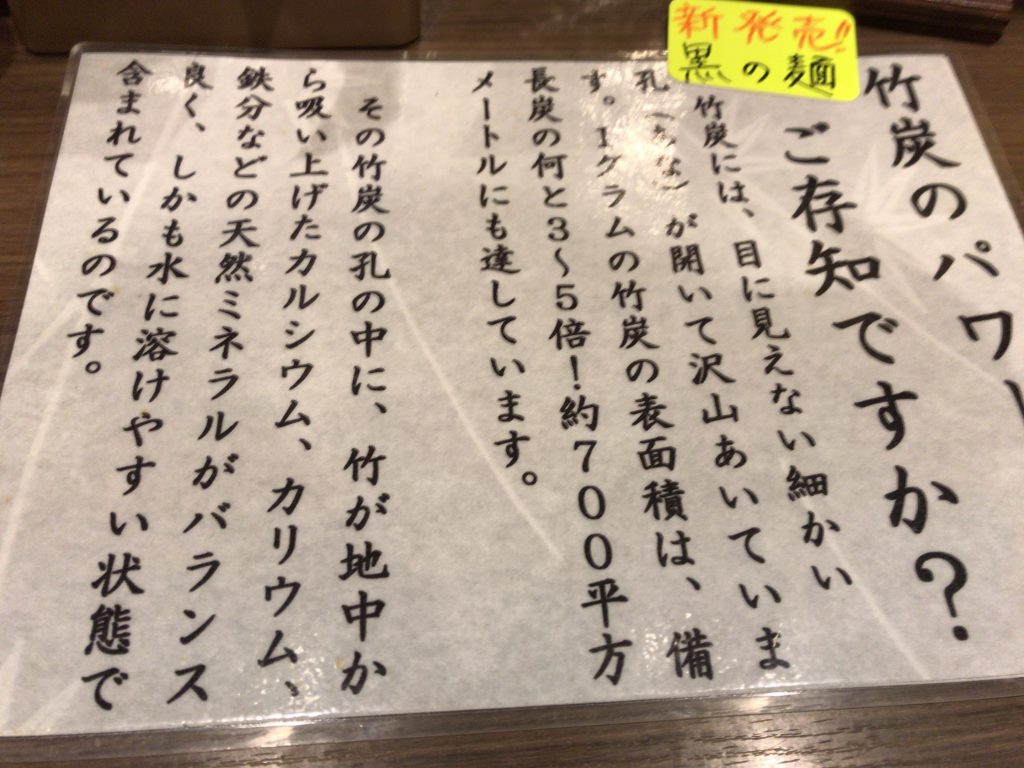 新発売!!
黒の麺
竹炭のパワー
ご存知ですか?
竹炭には、目に見えない細かい
孔(あな)が開いて沢山あいていま
す。1グラムの竹炭の表面積は、備
長炭の何と3〜5倍!約700平方
メートルにも達しています。
その竹炭の孔の中に、竹が地中か
ら吸い上げたカルシウム、カリウム、
鉄分などの天然ミネラルがバランス
良く、しかも水に溶けやすい状態で
含まれているのです。